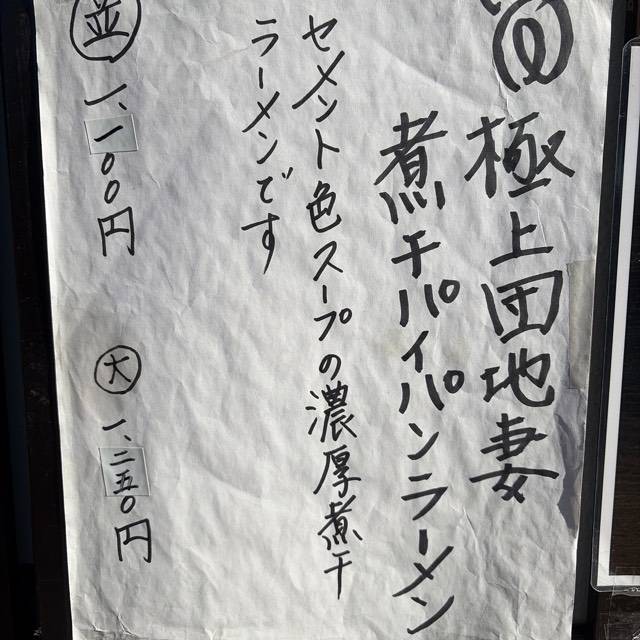 極上団地妻
煮干パイパンラーメン
セメント色スープの濃厚煮干
ラーメンです
並 一、一〇〇円
大 一、二五〇円